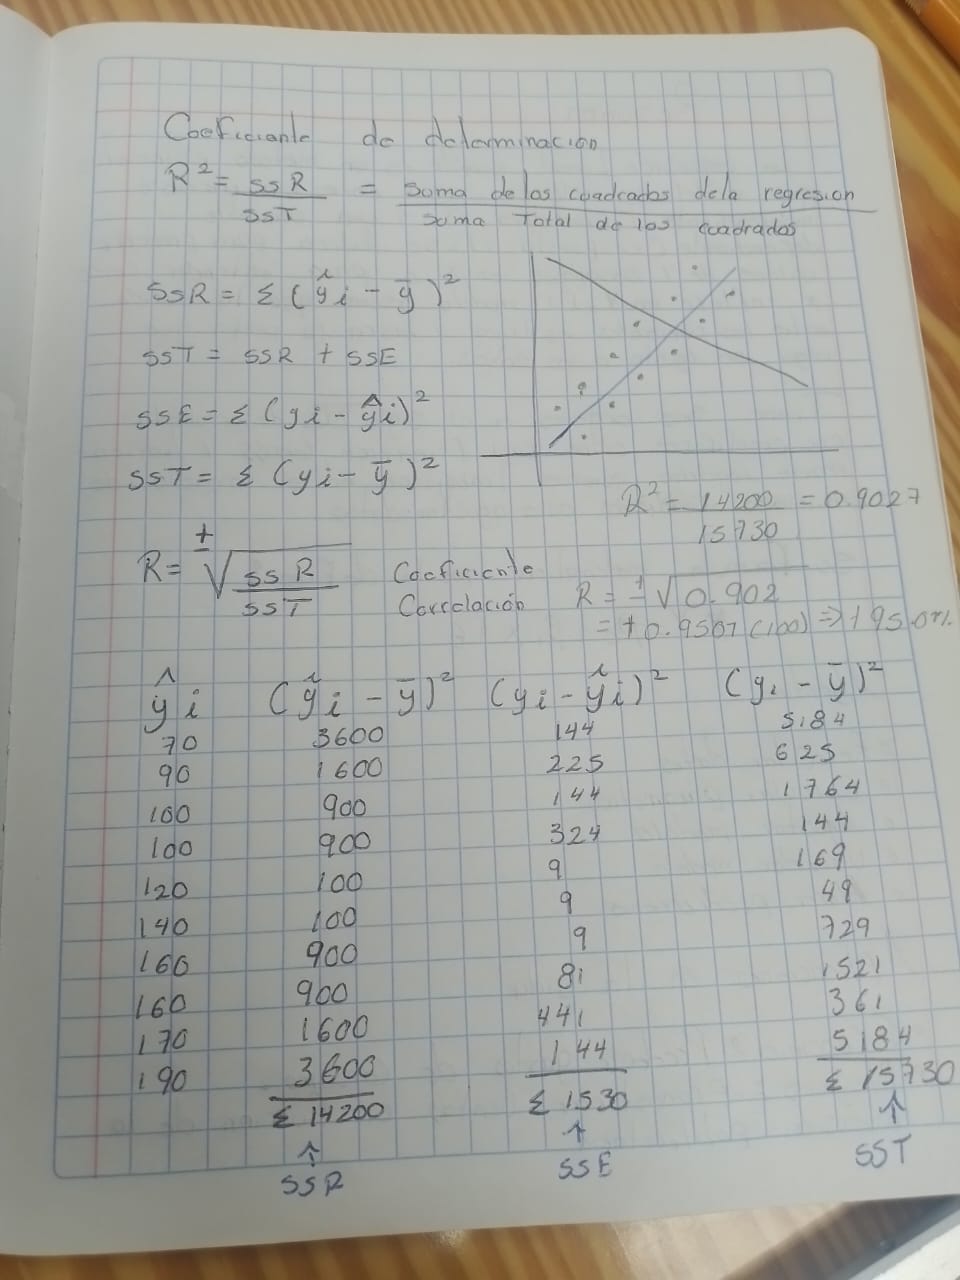 Coeficiente de determinacion
R² = SSR / SST = Suma de los cuadrados de la regresion / Suma Total de los cuadrados
SSR = Σ (ŷi - ȳ)²
SST = SSR + SSE
SSE = Σ (yi - ŷi)²
SST = Σ (yi - ȳ)²
R² = 14200 / 15730 = 0.9027
R = ±√(SSR / SST) Coeficiente Correlación
R = ±√0.902
= +0.9501 (100) ⇒ 195.0%
ŷi (ŷi - ȳ)² (yi - ŷi)² (yi - ȳ)²
70 3600 144 5184
90 1600 225 625
100 900 144 1764
100 900 324 144
120 100 9 169
140 100 9 49
160 900 9 729
160 900 81 1521
170 1600 441 361
190 3600 144 5184
Σ 14200 Σ 1530 Σ 15730
↑ ↑ ↑
SSR SSE SST